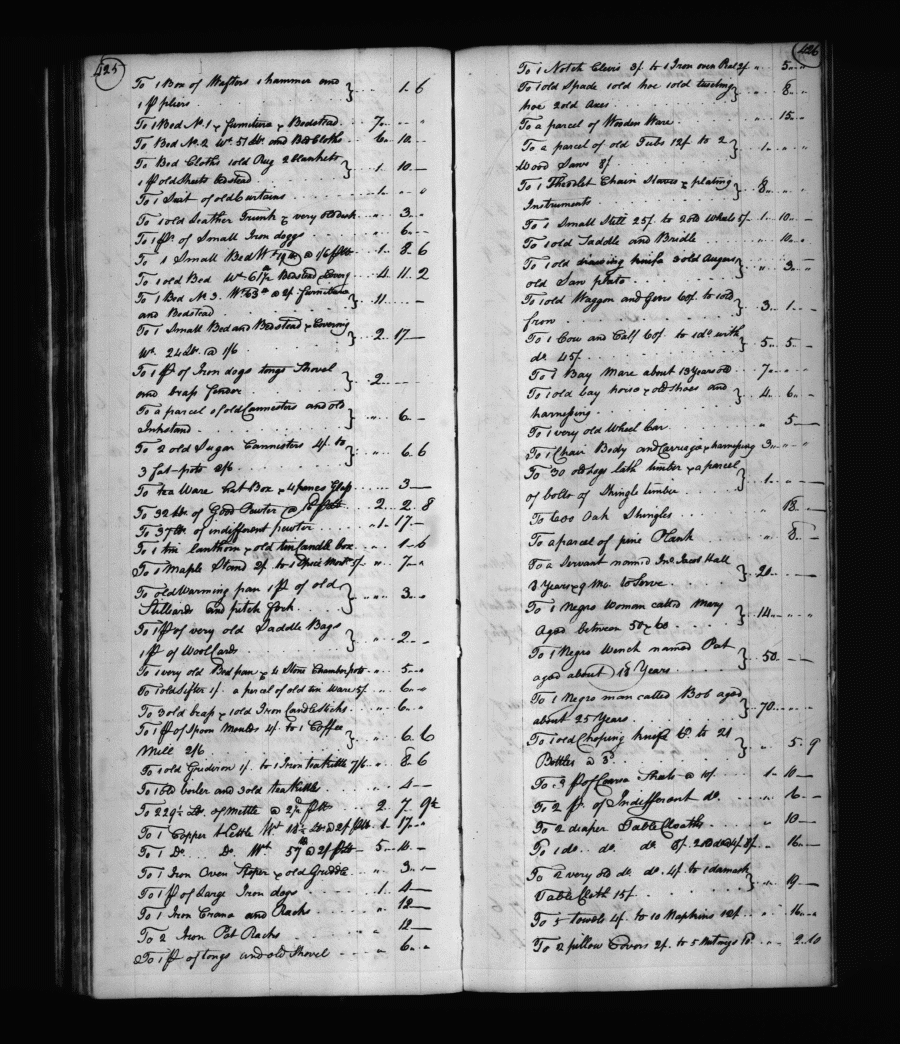 425
To 1 Box of Waffors 1 hammer and
1 pr pliers } 1 6
To 1 Bed No. 1 & furniture & Bedstead 7
To Bed No. 2 Wt. 57 lb. and Bed Cloths 6 10
To Bed Cloths 1 old Rug 2 blankets
1 pr old Sheets bedstead } 1 10
To 1 Suit of old Curtains 1
To 1 old Leather Trunk & very old desk 3
To 1 pr. of Small Iron doggs 6
To 1 Small Bed Wt 19 lb @ 1/6 1 8 6
To 1 old Bed Wt 61 lb Bedstead & Covering 4 11 2
To 1 Bed No 3. Wt 63 lb @ 2/ furniture
and Bedstead } 11
To 1 Small Bed and Bedstead & Covering
Wt. 24 lb. @ 1/6 } 2 17
To 1 pr of Iron dogs tongs Shovel
and brass fender } 2
To a parcel of old Cannisters and old
Inkstand } 6
To 2 old Sugar Cannisters 4/. to
3 fat-pots 2/6 } 6 6
To tea Ware Hat Box & 4 panes Glass 3
To 32 lbs. of Good Pewter @ 2 2 8
To 37 lbs. of indifferent pewter 1 17
To 1 tin lanthorn & old tin Candle box 1 6
To 1 Maple Stand 2/. to 1 Spice Mortr 5/. 7
To old Warming pan 1 pr of old
Stilliards and pitch fork } 3
To 1 pr of very old Saddle Bags
1 pr of Wool Cards } 2
To 1 very old Bed pan & 4 Stone Chamber pots 5
To 1 old Sifter 1/. a parcel of old tin ware 5/. 6
To 3 old brass & 1 old Iron Candlesticks 6
To 1 pr of Spoon Moulds 4/. to 1 Coffee
Mill 2/6 } 6 6
To 1 old Gridiron 1/. to 1 Iron tea Kettle 7/6 8 6
To 1 old boiler and 3 old tea Kettle 4
To 229½ lb. of Mettle @ 2 7 9¼
To 1 Copper Kettle Wt 18½ lb @ 2/. 1 17
To 1 Do. Do. Wt 57 @ 2/ 5
To 1 Iron Oven Stoper & old Griddle 3
To 1 pr of Large Iron dogs 1 4
To 1 Iron Crane and Racks 12
To 2 Iron Pot Racks 12
To 1 pr of tongs and old Shovel 6
426
To 1 Notch Clevis 3/. to 1 Iron oven Peal 2/. 5
To 1 old Spade 1 old hoe 1 old
hoe 2 old Axes } 8
To a parcel of Wooden Ware 15
To a parcel of old Tubs 12/. to 2
Wood Saws 8/. } 1
To 1 Theodlet Chain Staves & plating
Instruments } 8
To 1 Small Still 25/. to 2 old Wheels 5/. 1 10
To 1 old Saddle and Bridle 10
To 1 old drawing knife 3 old Augers
old Saw plate } 3
To 1 old Waggon and Gers 60/. to 1 old
from } 3 1
To 1 Cow and Calf 60/. to 1 do. with
do. 45/. } 5 5
To 1 Bay Mare about 13 Years old 7
To 1 old bay horse & old Shoes and
harnessing } 4 6
To 1 very old Wheel Car 5
To 1 Chair Body and Carriage & harnessing 3
To 30 old logs lath timber & a parcel
of bolts of Shingle timber } 1
To 600 Oak Shingles 18
To a parcel of pine Plank 8
To a Servant named Jno. Jacob Hall
3 Years & 9 Mo. to Serve } 20
To 1 Negro Woman called Mary
Aged between 50 & 60 } 14
To 1 Negro Wench named Pat
aged about 18 Years } 50
To 1 Negro man called Bob aged
about 25 Years } 70
To 1 old Choping knife 6d. to 21
Bottles @ 3d. } 5 9
To 3 pr of Coarse Sheets @ 10/. 1 10
To 2 pr. of Indifferent do. 16
To 2 diaper Table Cloaths 10
To 1 do. do. do. 8/. 16
To 2 very old do. do. 4/. to 1 damask
Table Cloth 15/. } 19
To 5 towels 4/. to 10 Napkins 12/. 16
To 2 pillow Covers 2/. to 5 Nutmegs 10d. 2 10